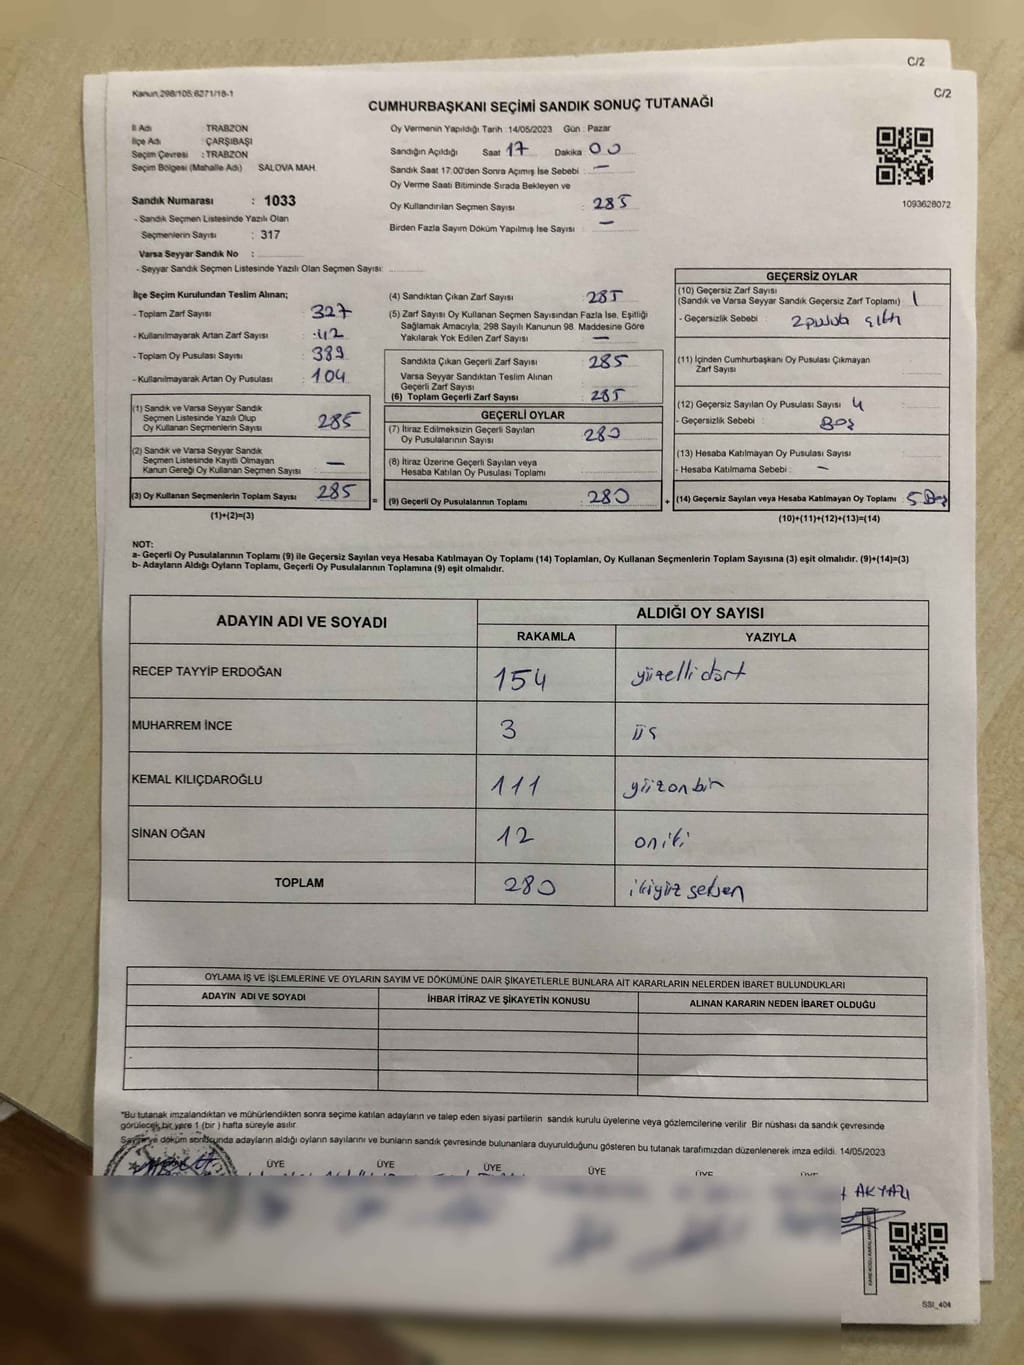 C/2
Kanun.298/105;6271/18-1
C/2
CUMHURBAŞKANI SEÇİMİ SANDIK SONUÇ TUTANAĞI
İl Adı TRABZON
İlçe Adı : ÇARŞIBAŞI
Seçim Çevresi : TRABZON
Seçim Bölgesi (Mahalle Adı) SALOVA MAH.
Sandık Numarası : 1033
- Sandık Seçmen Listesinde Yazılı Olan
Seçmenlerin Sayısı : 317
Varsa Seyyar Sandık No :
- Seyyar Sandık Seçmen Listesinde Yazılı Olan Seçmen Sayısı:
Oy Vermenin Yapıldığı Tarih : 14/05/2023 Gün : Pazar
Sandığın Açıldığı Saat 17 Dakika 00
Sandık Saat 17.00'den Sonra Açımış İse Sebebi : —
Oy Verme Saati Bitiminde Sırada Bekleyen ve
Oy Kullandırılan Seçmen Sayısı : 285
Birden Fazla Sayım Döküm Yapılmış İse Sayısı : —
1093628072
İlçe Seçim Kurulundan Teslim Alınan;
- Toplam Zarf Sayısı : 327
- Kullanılmayarak Artan Zarf Sayısı : 42
- Toplam Oy Pusulası Sayısı : 389
- Kullanılmayarak Artan Oy Pusulası : 104
(1) Sandık ve Varsa Seyyar Sandık
Seçmen Listesinde Yazılı Olup
Oy Kullanan Seçmenlerin Sayısı : 285
(2) Sandık ve Varsa Seyyar Sandık
Seçmen Listesinde Kayıtlı Olmayan
Kanun Gereği Oy Kullanan Seçmen Sayısı : —
(3) Oy Kullanan Seçmenlerin Toplam Sayısı : 285
(1)+(2)=(3)
=
(4) Sandıktan Çıkan Zarf Sayısı : 285
(5) Zarf Sayısı Oy Kullanan Seçmen Sayısından Fazla İse, Eşitliği
Sağlamak Amacıyla, 298 Sayılı Kanunun 98. Maddesine Göre
Yakılarak Yok Edilen Zarf Sayısı : —
Sandıkta Çıkan Geçerli Zarf Sayısı : 285
Varsa Seyyar Sandıktan Teslim Alınan
Geçerli Zarf Sayısı :
(6) Toplam Geçerli Zarf Sayısı : 285
GEÇERLİ OYLAR
(7) İtiraz Edilmeksizin Geçerli Sayılan
Oy Pusulalarının Sayısı : 280
(8) İtiraz Üzerine Geçerli Sayılan veya
Hesaba Katılan Oy Pusulası Toplamı
(9) Geçerli Oy Pusulalarının Toplamı : 280
+
GEÇERSİZ OYLAR
(10) Geçersiz Zarf Sayısı
(Sandık ve Varsa Seyyar Sandık Geçersiz Zarf Toplamı) 1
- Geçersizlik Sebebi : 2 pulula çıktı
(11) İçinden Cumhurbaşkanı Oy Pusulası Çıkmayan
Zarf Sayısı :
(12) Geçersiz Sayılan Oy Pusulası Sayısı : 4
- Geçersizlik Sebebi : Boş
(13) Hesaba Katılmayan Oy Pusulası Sayısı
- Hesaba Katılmama Sebebi : —
(14) Geçersiz Sayılan veya Hesaba Katılmayan Oy Toplamı : 5 Boş
(10)+(11)+(12)+(13)=(14)
NOT:
a- Geçerli Oy Pusulalarının Toplamı (9) ile Geçersiz Sayılan veya Hesaba Katılmayan Oy Toplamı (14) Toplamları, Oy Kullanan Seçmenlerin Toplam Sayısına (3) eşit olmalıdır. (9)+(14)=(3)
b- Adayların Aldığı Oyların Toplamı, Geçerli Oy Pusulalarının Toplamına (9) eşit olmalıdır.
ADAYIN ADI VE SOYADI ALDIĞI OY SAYISI
RAKAMLA YAZIYLA
RECEP TAYYİP ERDOĞAN 154 yüzelli dört
MUHARREM İNCE 3 üç
KEMAL KILIÇDAROĞLU 111 yüzonbir
SİNAN OĞAN 12 oniki
TOPLAM 280 ikiyüz seksen
OYLAMA İŞ VE İŞLEMLERİNE VE OYLARIN SAYIM VE DÖKÜMÜNE DAİR ŞİKAYETLERLE BUNLARA AİT KARARLARIN NELERDEN İBARET BULUNDUKLARI
ADAYIN ADI VE SOYADI İHBAR İTİRAZ VE ŞİKAYETİN KONUSU ALINAN KARARIN NEDEN İBARET OLDUĞU
*Bu tutanak imzalandıktan ve mühürlendikten sonra seçime katılan adayların ve talep eden siyasi partilerin sandık kurulu üyelerine veya gözlemcilerine verilir. Bir nüshası da sandık çevresinde
görülecek bir yere 1 (bir ) hafta süreyle asılır.
Sayım ve döküm sonucunda adayların aldığı oyların sayılarını ve bunların sandık çevresinde bulunanlara duyurulduğunu gösteren bu tutanak tarafımızdan düzenlenerek imza edildi. 14/05/2023
ÜYE ÜYE ÜYE ÜYE ÜYE ÜYE
AKYAZI
SSI_404